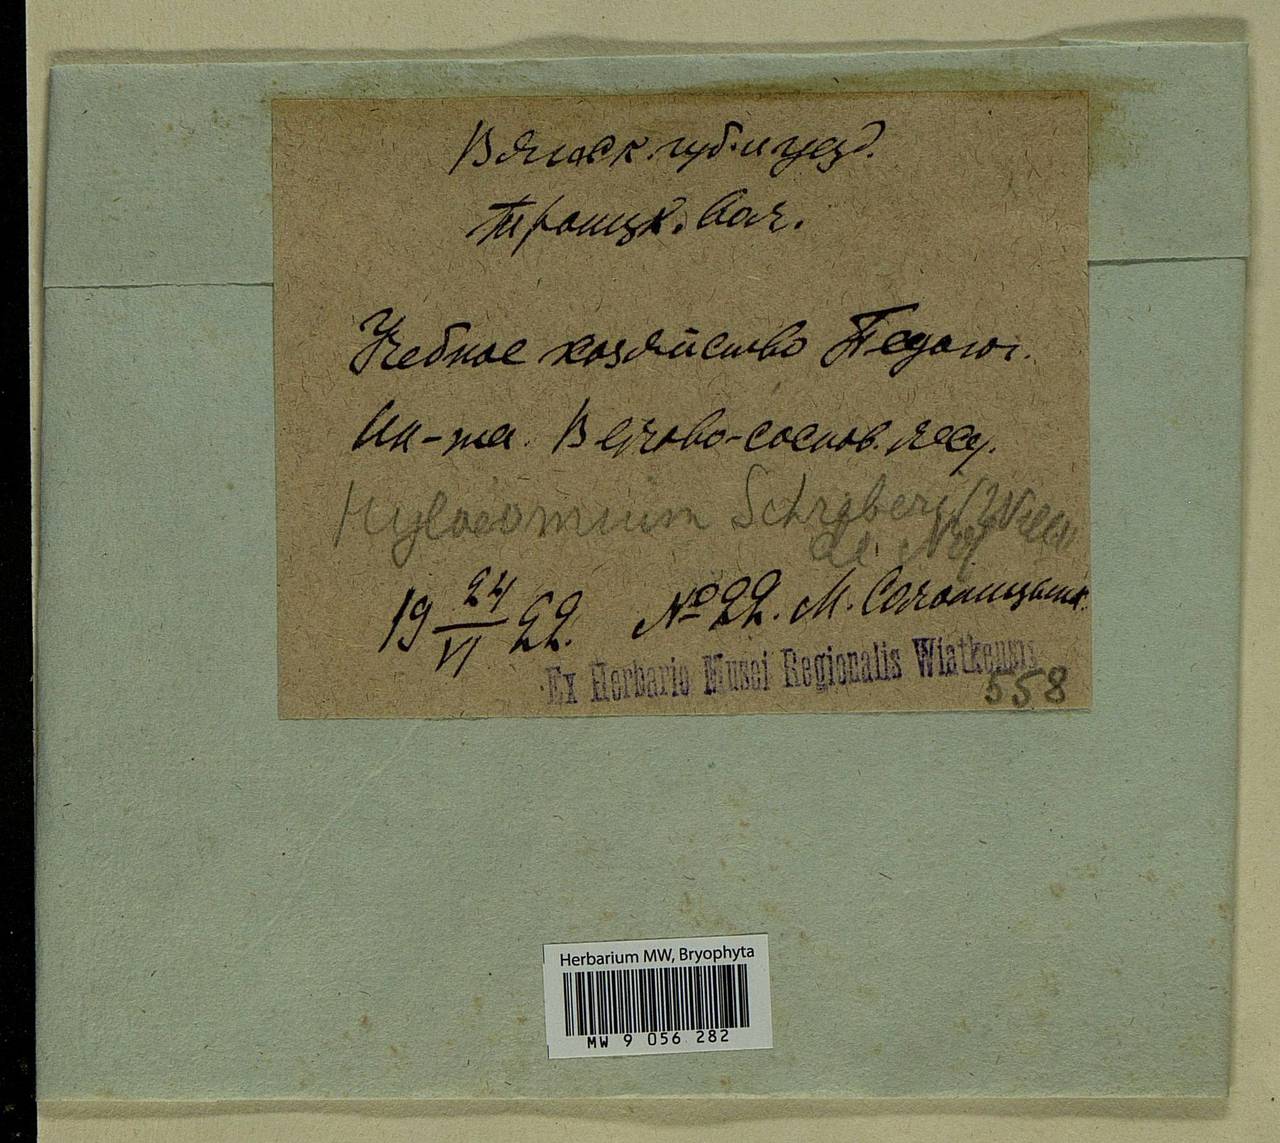 Вятск. губ. и уезд.
Троицк. вол.
Учебное хозяйство Педагог.
Ин-та. В елово-соснов. лесу.
Hylocomium Schreberi (Willd.)
de Not
19 24/VI 22. № 22. М.
Ex Herbario Musei Regionalis Wiatkensis
558
Herbarium MW, Bryophyta
MW 9 056 282